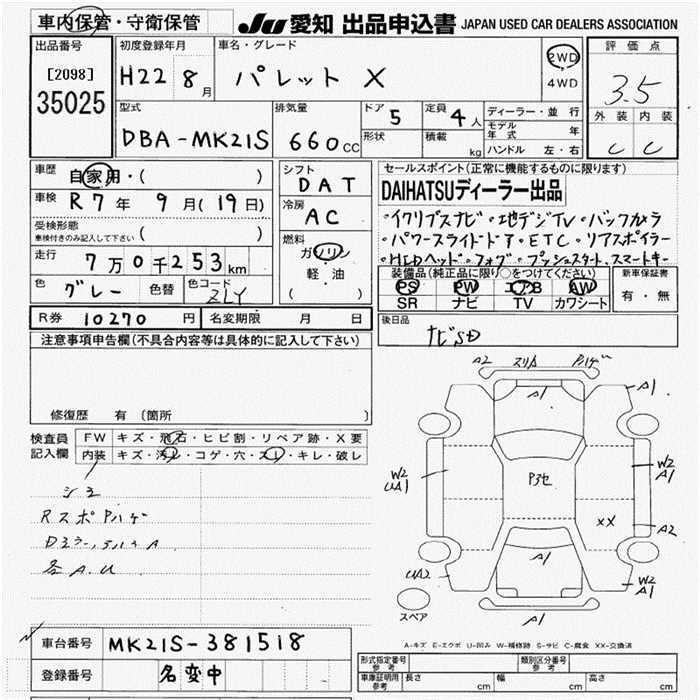 車内保管・守衛保管
JU 愛知 出品申込書 JAPAN USED CAR DEALERS ASSOCIATION
出品番号
[2098]
35025
初度登録年月
H22 8月
車名・グレード
パレット X
2WD
4WD
評価点
3.5
外装 内装
C C
型式
DBA-MK21S
排気量
660cc
ドア 5
形状
定員 4人
積載 kg
ディーラー・並行
モデル年式 年
ハンドル 左・右
車歴 自家用・( )
車検 R7年 9月(19日)
受検形態
車検付きのみ記入して下さい ( )
走行 7万0千253km
色 グレー 色替 色コード ZLY
シフト
DAT
冷房
AC
燃料
ガソリン
軽・油
( )
セールスポイント(正常に機能するものに限ります)
DAIHATSUディーラー出品
・イクリプスナビ・地デジTV・バックカメラ
・パワースライドドア・ETC・リアスポイラー
・HIDヘッド・フォグ・プッシュスタート、スマートキー
装備品(純正品に限り○をつけてください)
PS PW エアB AW
SR ナビ TV カワシート
新車保証書
有・無
R券 10270円 名変期限 月 日
後日品
ナビSD
注意事項申告欄(不具合内容等は具体的に記入して下さい)
修復歴 有 (箇所 )
検査員
記入欄
FW キズ・飛石・ヒビ割・リペア跡・X要
内装 キズ・汚レ・コゲ・穴・スレ・キレ・破レ
シミ
RスポPハゲ
各A.U
A2 スリA Pハゲ
A1
A1
W2
UA1
P3セ
W2
A1
XX
A2
A1
UA2
W2
A1
A1
スペア
A-キズ E-エクボ U-凹み W-補修跡 S-サビ C-腐食 XX-交換済
車台番号 MK21S-381518
登録番号 名変中
形式指定番号 参考
類別区分番号 参考
車庫証明用 参考 長さ cm 幅 cm 高さ cm